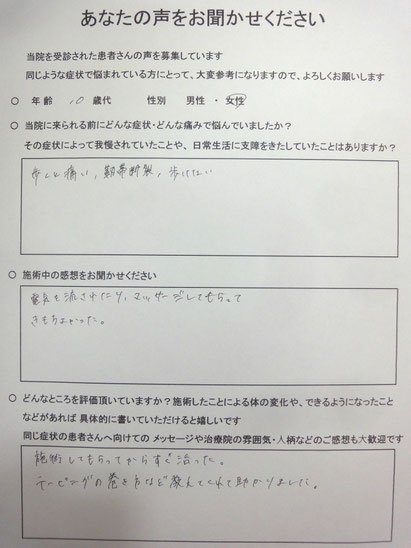 あなたの声をお聞かせください
当院を受診された患者さんの声を募集しています
同じような症状で悩まれている方にとって、大変参考になりますので、よろしくお願いします
○ 年齢 10 歳代 性別 男性 ・ 女性
○ 当院に来られる前にどんな症状・どんな痛みで悩んでいましたか？
その症状によって我慢されていたことや、日常生活に支障をきたしていたことはありますか？
歩くと痛い，靭帯断裂，歩けない
○ 施術中の感想をお聞かせください
電気を流されたり、マッサージしてもらって
きもちよかった。
○ どんなところを評価頂いていますか？施術したことによる体の変化や、できるようになったこと
などがあれば 具体的に書いていただけると嬉しいです
同じ症状の患者さんへ向けての メッセージや治療院の雰囲気・人柄などのご感想も大歓迎です
施術してもらってからすぐ治った。
テーピングの巻き方など教えてくれて助かりました。